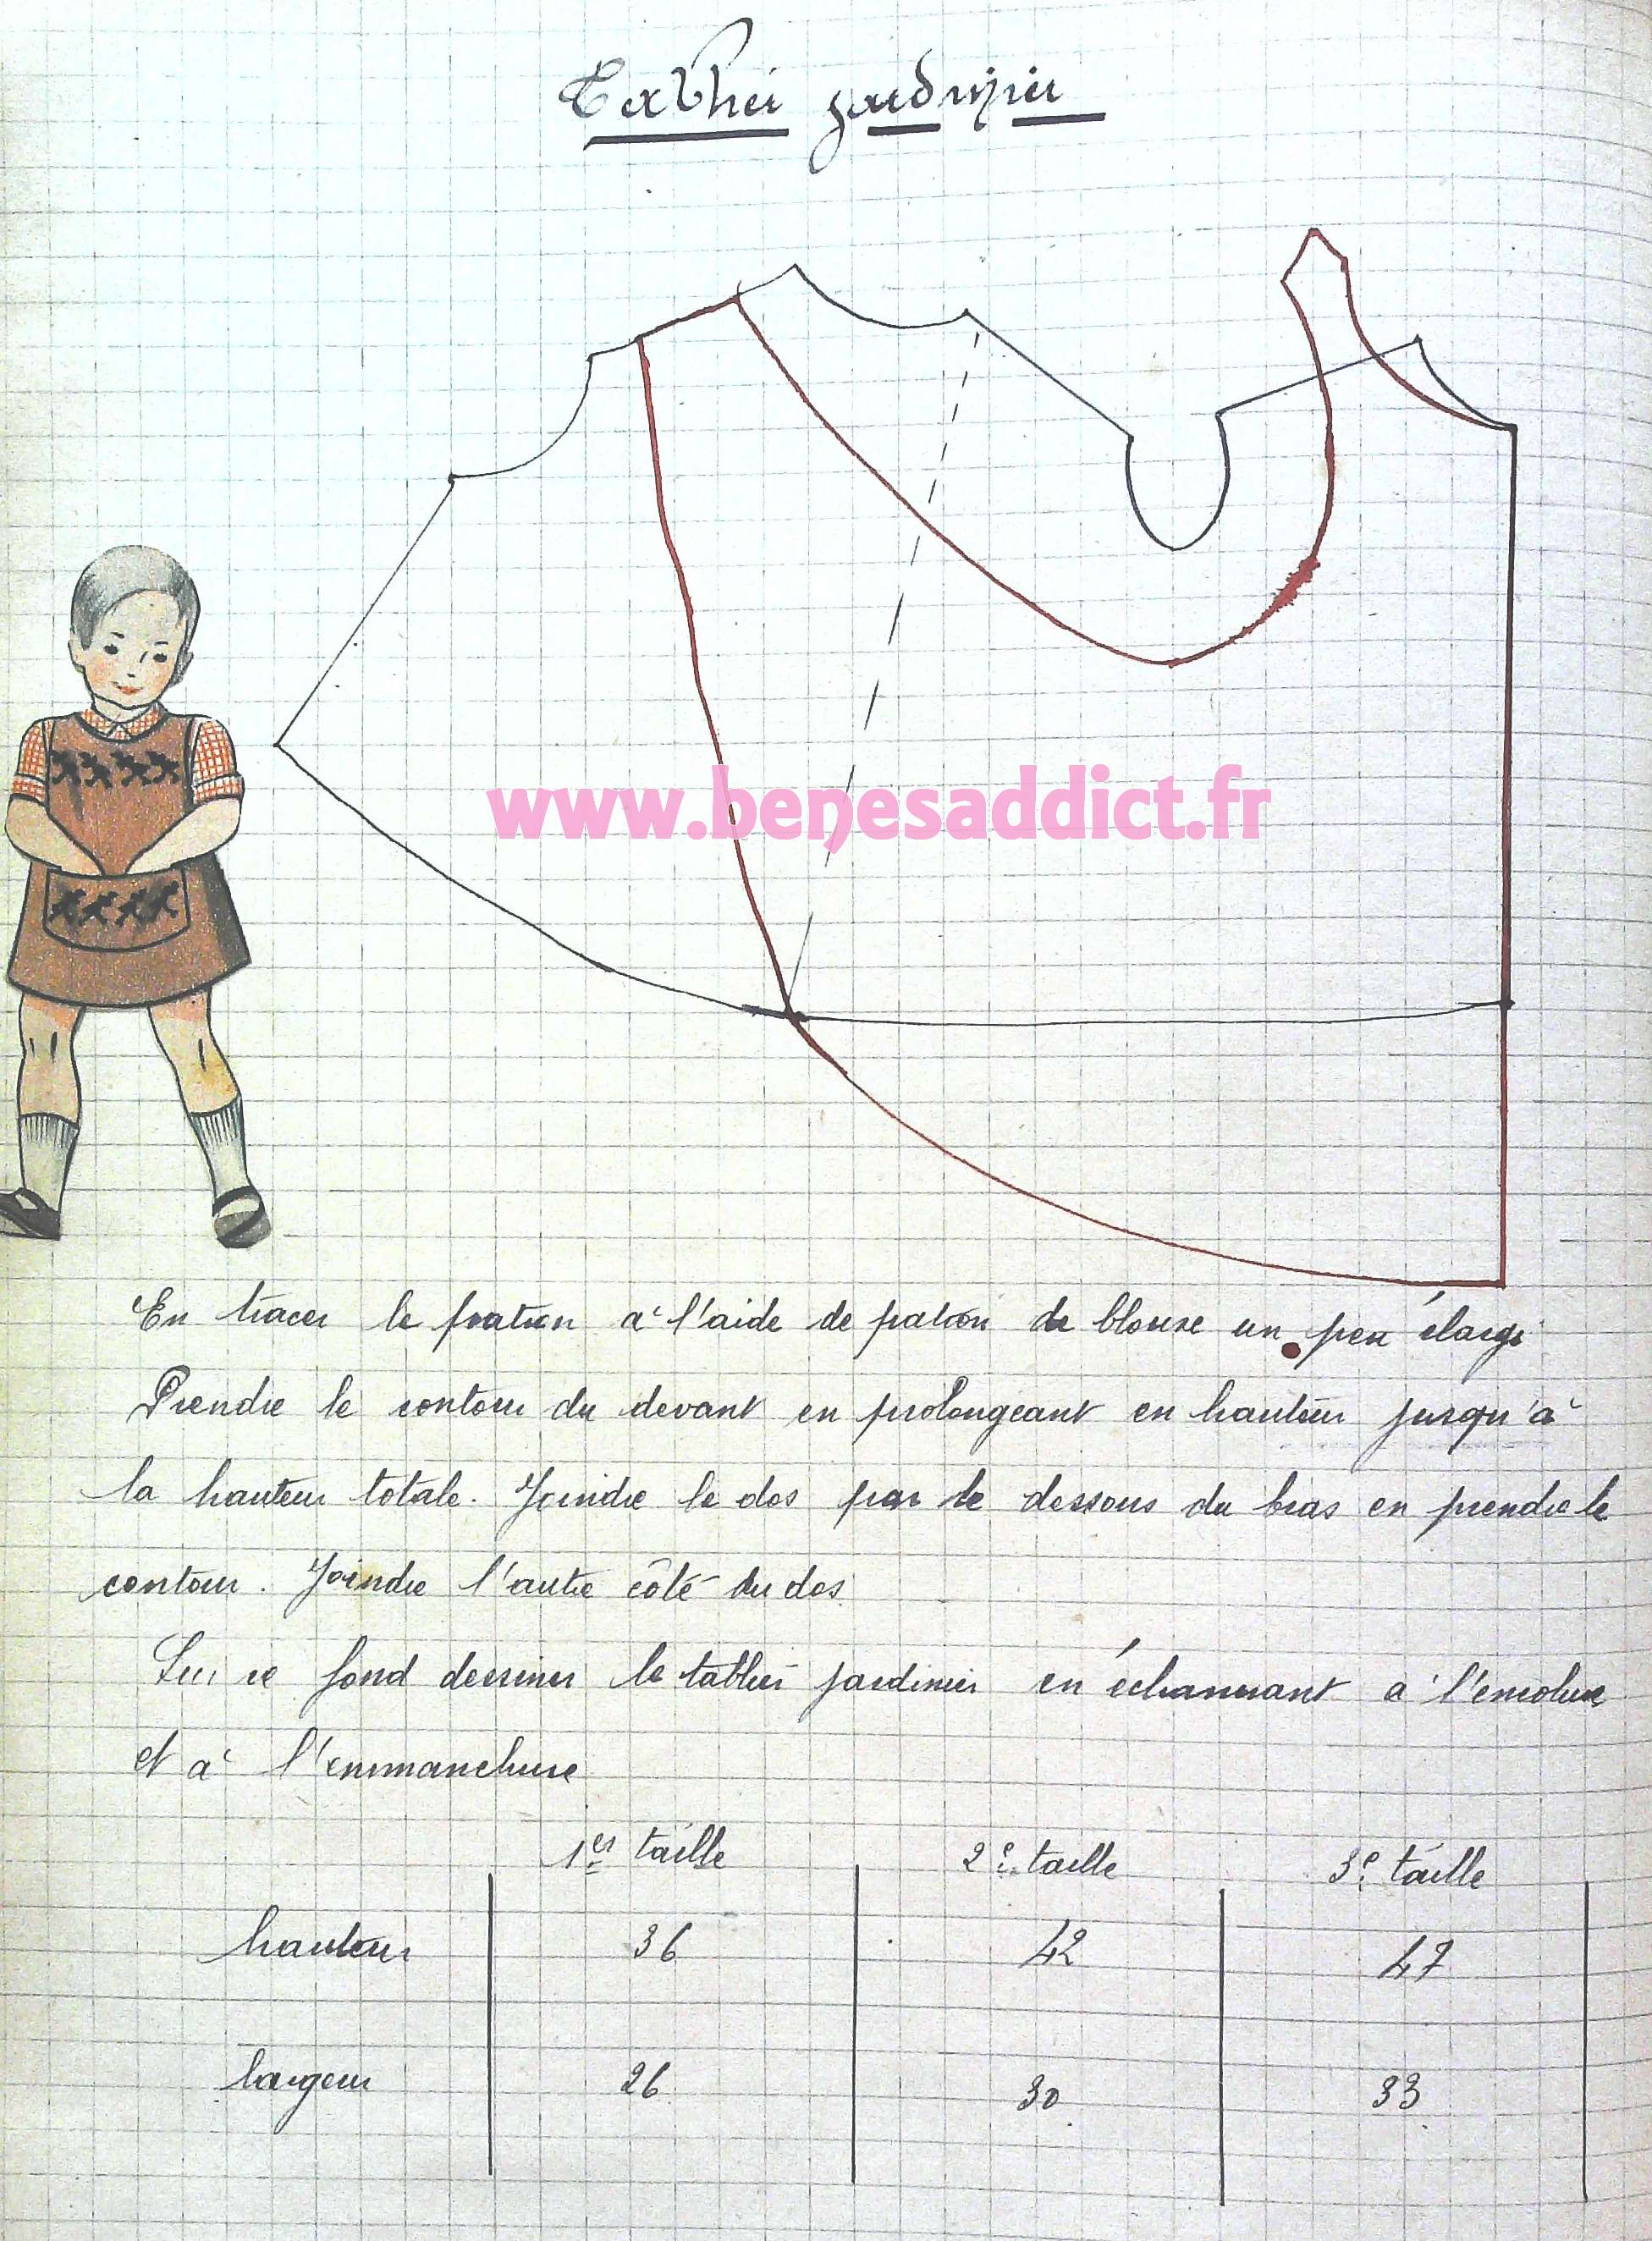 Tablier jardinier
www.benesaddict.fr
En tracer le patron à l'aide de patron de blouse un peu élargi
Prendre le contour du devant en prolongeant en hauteur jusqu'à
la hauteur totale. Joindre le dos par le dessous du bras en prendre le
contour. Joindre l'autre côté du dos
Sur ce fond dessiner le tablier jardinier en échancrant à l'encolure
et à l'emmanchure
1er taille 2e taille 3e taille
hauteur 36 42 47
largeur 26 30 33